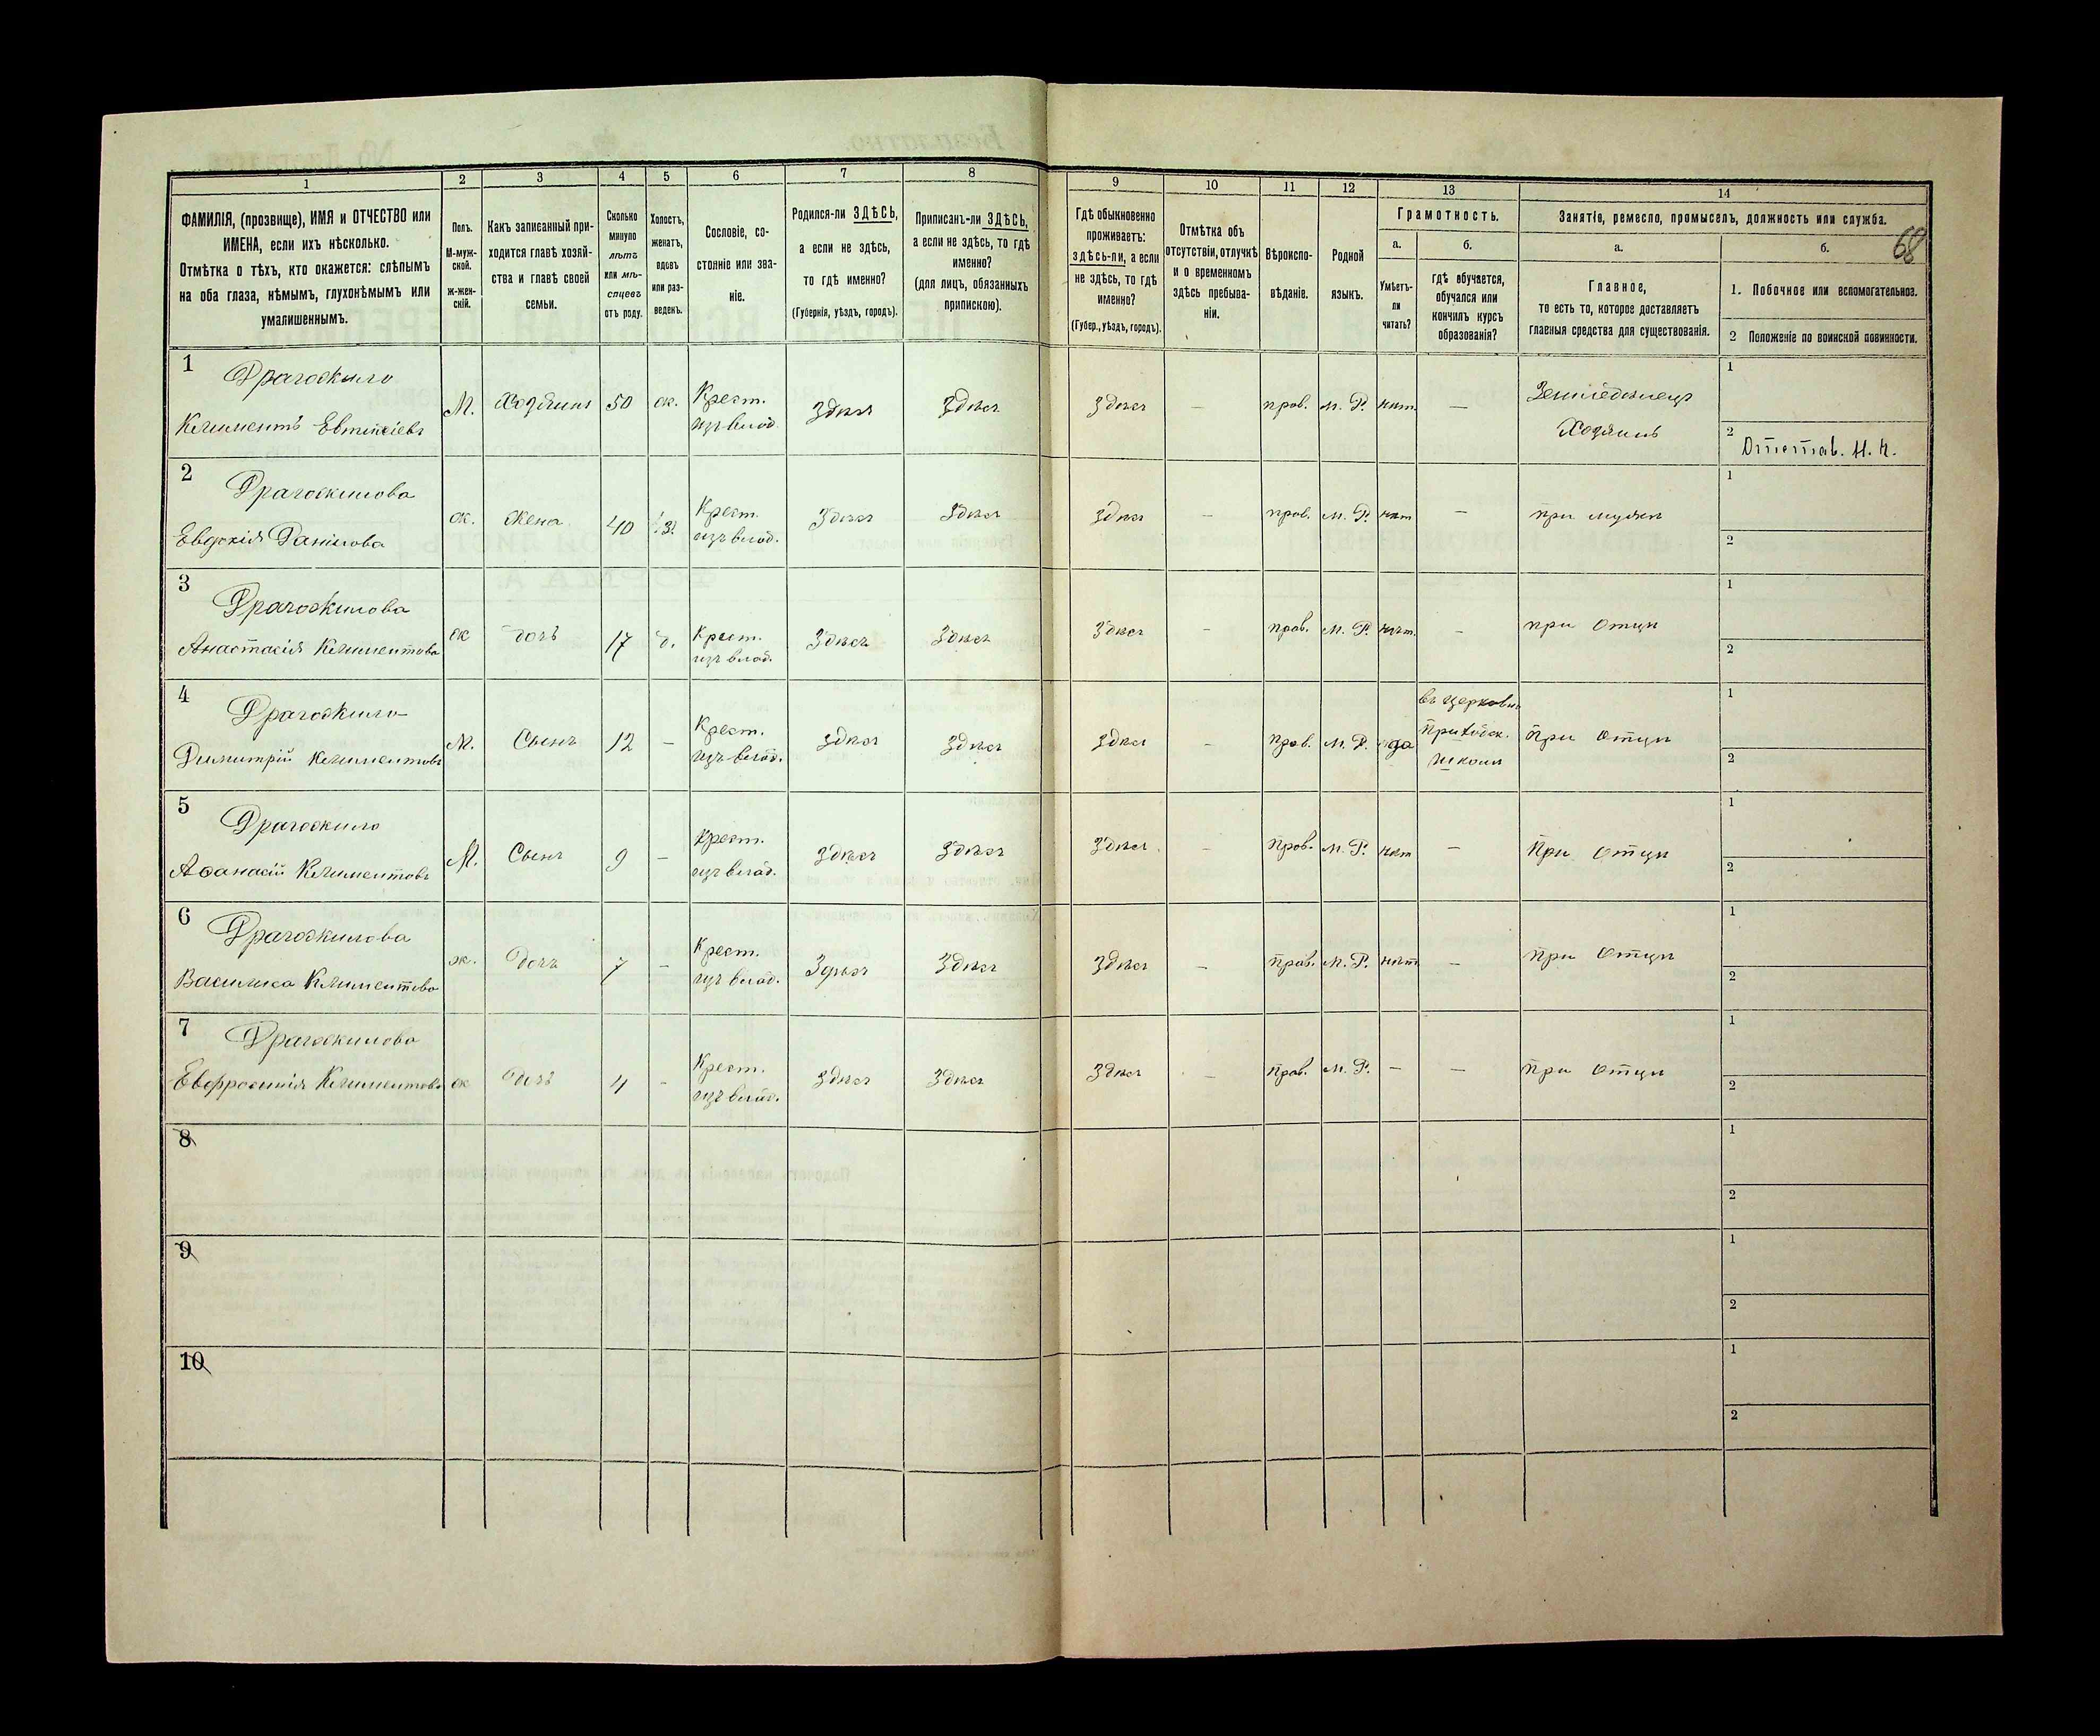 68
1 2 3 4 5 6 7 8 9 10 11 12 13 14
ФАМИЛІЯ, (прозвище), ИМЯ и ОТЧЕСТВО или
ИМЕНА, если ихъ нѣсколько.
Отмѣтка о тѣхъ, кто окажется: слѣпымъ
на оба глаза, нѣмымъ, глухонѣмымъ или
умалишеннымъ.
Полъ.
М-муж-
ской.
Ж-жен-
скій.
Какъ записанный при-
ходится главѣ хозяй-
ства и главѣ своей
семьи.
Сколько
минуло
лѣтъ
или мѣ-
сяцевъ
отъ роду.
Холостъ,
женатъ,
вдовъ
или раз-
веденъ.
Сословіе, со-
стояніе или зва-
ніе.
Родился-ли ЗДѢСЬ,
а если не здѣсь,
то гдѣ именно?
(Губернія, уѣздъ, городъ).
Приписанъ-ли ЗДѢСЬ,
а если не здѣсь, то гдѣ
именно?
(для лицъ, обязанныхъ
припискою).
Гдѣ обыкновенно
проживаетъ:
здѣсь-ли, а если
не здѣсь, то гдѣ
именно?
(Губер., уѣздъ, городъ).
Отмѣтка объ
отсутствіи, отлучкѣ
и о временномъ
здѣсь пребыва-
ніи.
Вѣроиспо-
вѣданіе.
Родной
языкъ.
Грамотность.
а.
Умѣетъ-
ли
читать?
б.
гдѣ обучается,
обучался или
кончилъ курсъ
образованія?
Занятіе, ремесло, промыселъ, должность или служба.
а.
Главное,
то есть то, которое доставляетъ
главныя средства для существованія.
б.
1. Побочное или вспомогательное.
2 Положеніе по воинской повинности.
1 Драгоскило
Климентъ Евтихіевъ М. Хозяинъ 50 ж. Крест. изъ влад. Здѣсь Здѣсь Здѣсь — прав. М. Р. нѣт. — Земледѣлецъ Хозяинъ 1
2 Отстав. Н. Ч.
2 Драгоскилова
Евдокія Данилова ж. Жена 40 З. Крест. изъ влад. Здѣсь Здѣсь Здѣсь — прав. М. Р. нѣт — при мужѣ 1
2
3 Драгоскилова
Анастасія Климентова ж дочь 17 д. Крест. изъ влад. Здѣсь Здѣсь Здѣсь — прав. М. Р. нѣт. — при отцѣ 1
2
4 Драгоскило
Димитрій Климентовъ М. Сынъ 12 — Крест. изъ влад. Здѣсь Здѣсь Здѣсь — прав. М. Р. да въ церковн. приходск. школѣ при отцѣ 1
2
5 Драгоскило
Аѳанасій Климентовъ М. Сынъ 9 — Крест. изъ влад. Здѣсь Здѣсь Здѣсь — прав. М. Р. нѣт — при отцѣ 1
2
6 Драгоскилова
Василиса Климентова ж. Дочь 7 — Крест. изъ влад. Здѣсь Здѣсь Здѣсь — прав. М. Р. нѣт. — при отцѣ 1
2
7 Драгоскилова
Евфросинія Климентова ж Дочь 4 — Крест. изъ влад. Здѣсь Здѣсь Здѣсь — прав. М. Р. — — при отцѣ 1
2
8 1
2
9 1
2
10 1
2